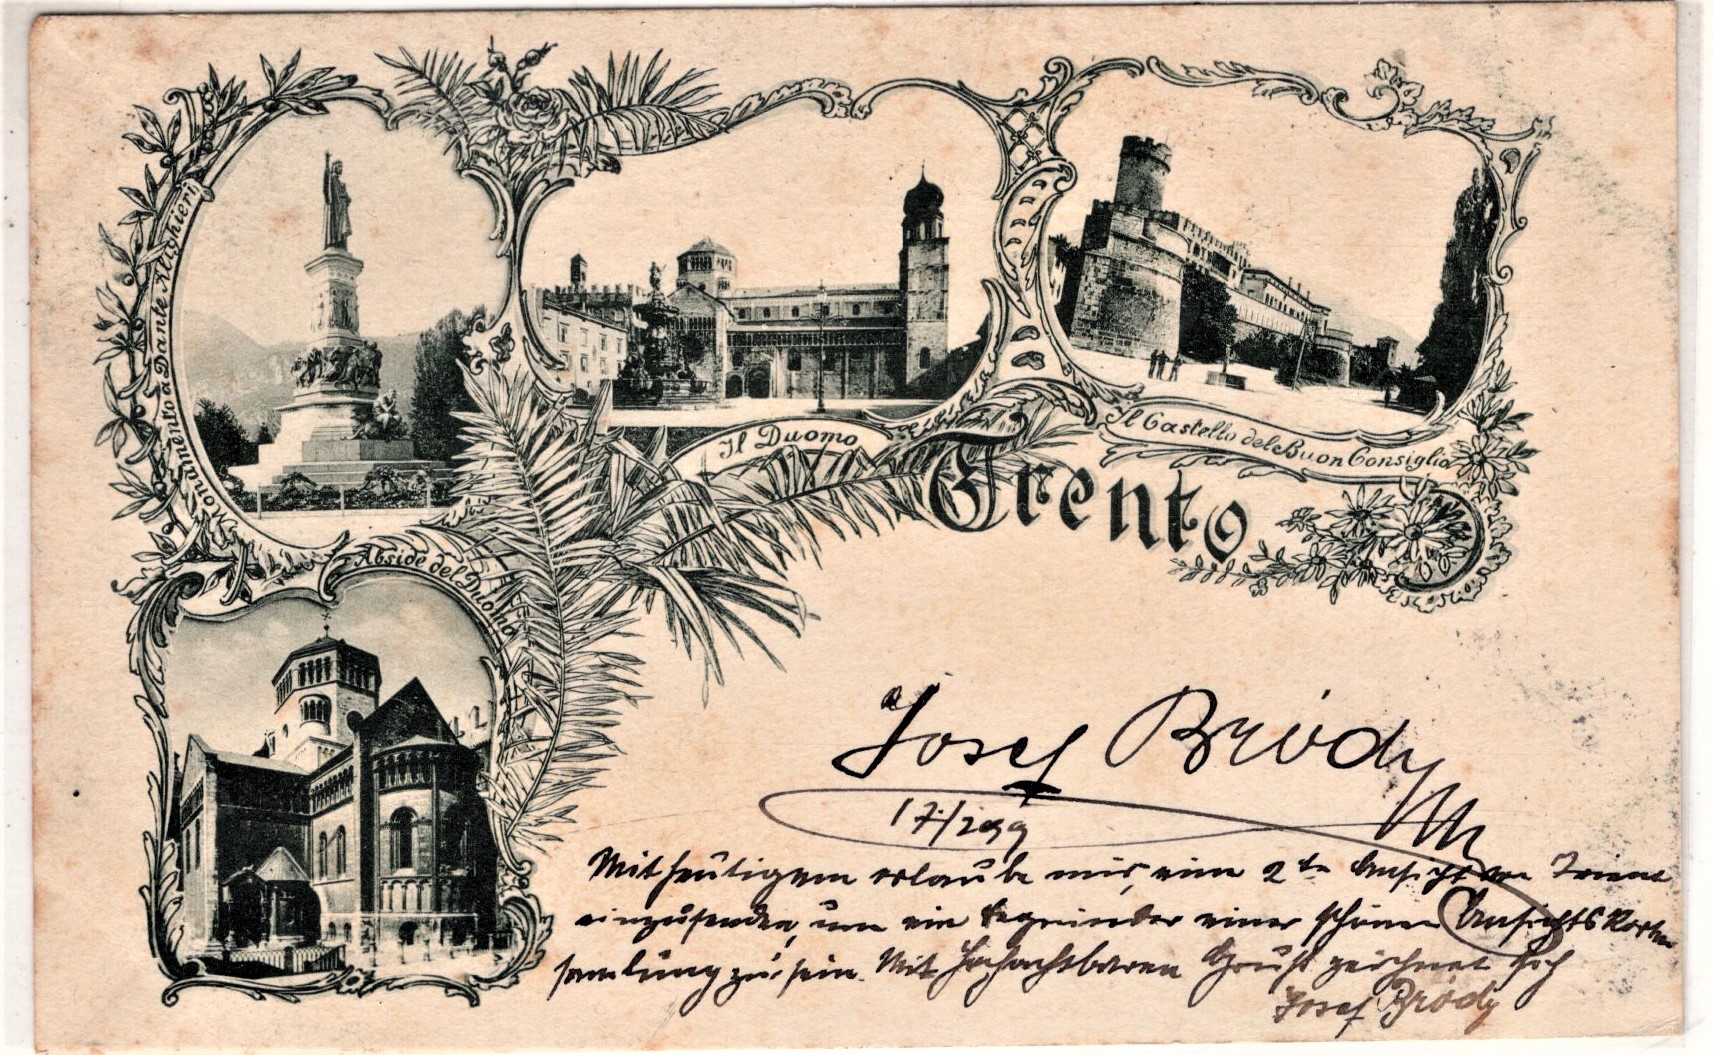 Monumento a Dante Alighieri
Il Duomo
Il Castello del Buon Consiglio
Trento
Abside del Duomo
Josef Bródy
17/2 99
Mit heutigem erlaube mir, eine 2te Ansicht von Trient
einzusenden, um ein Begründer einer schönen Ansichtskarten
samlung zu sein. Mit hochachtbaren Gruß zeichnet sich
Josef Bródy